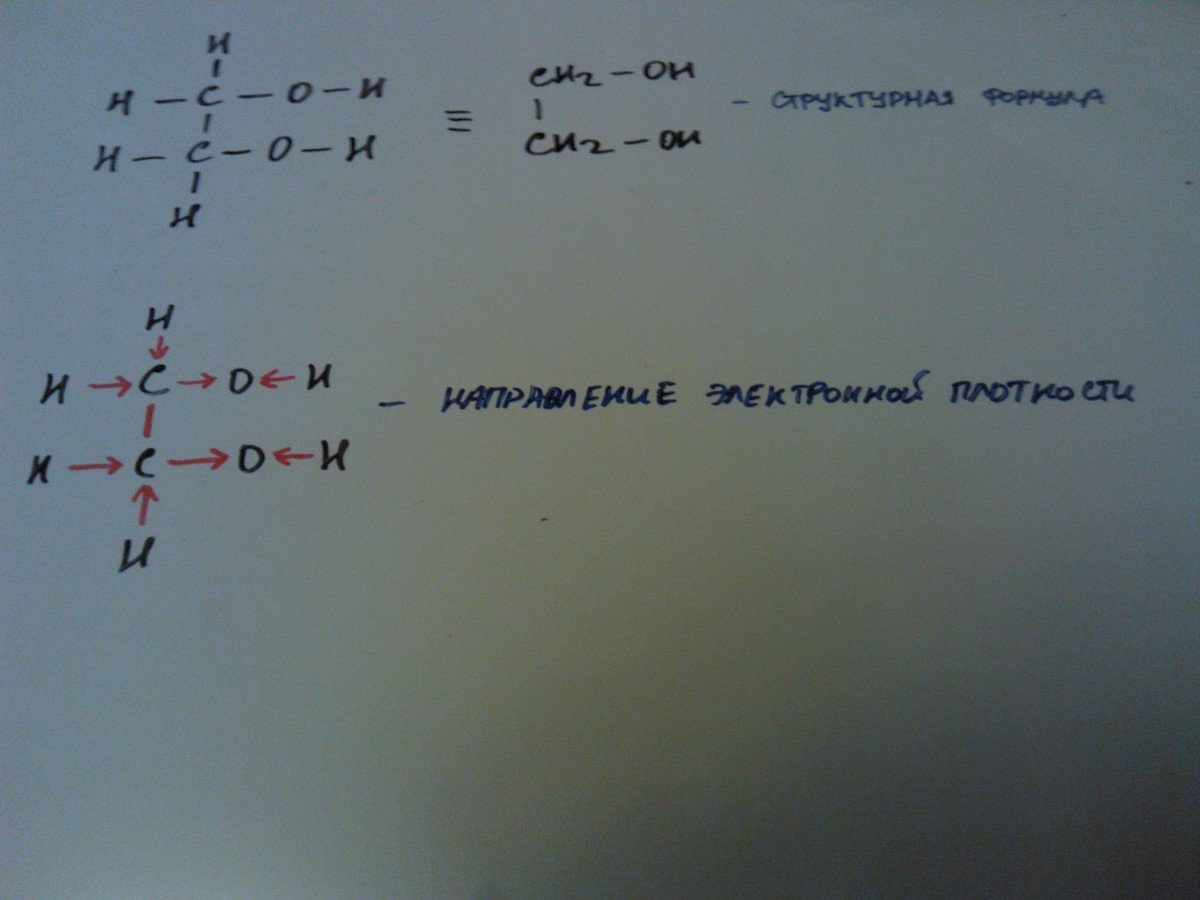 H
H — C — O — H
H — C — O — H
H
≡
CH2 — OH
CH2 — OH
— СТРУКТУРНАЯ ФОРМУЛА
H
H → C → O ← H
H → C → O ← H
H
— НАПРАВЛЕНИЕ ЭЛЕКТРОННОЙ ПЛОТНОСТИ